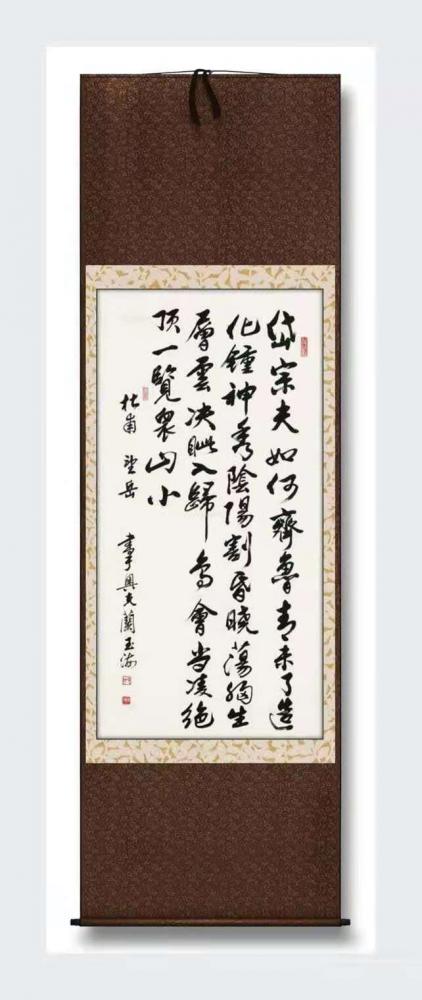 岱宗夫如何齊魯青未了造
化鍾神秀陰陽割昏曉蕩胸生
層雲决眦入歸鳥會當凌绝
顶一覽衆山小
杜甫 望岳 書于興文蘭玉